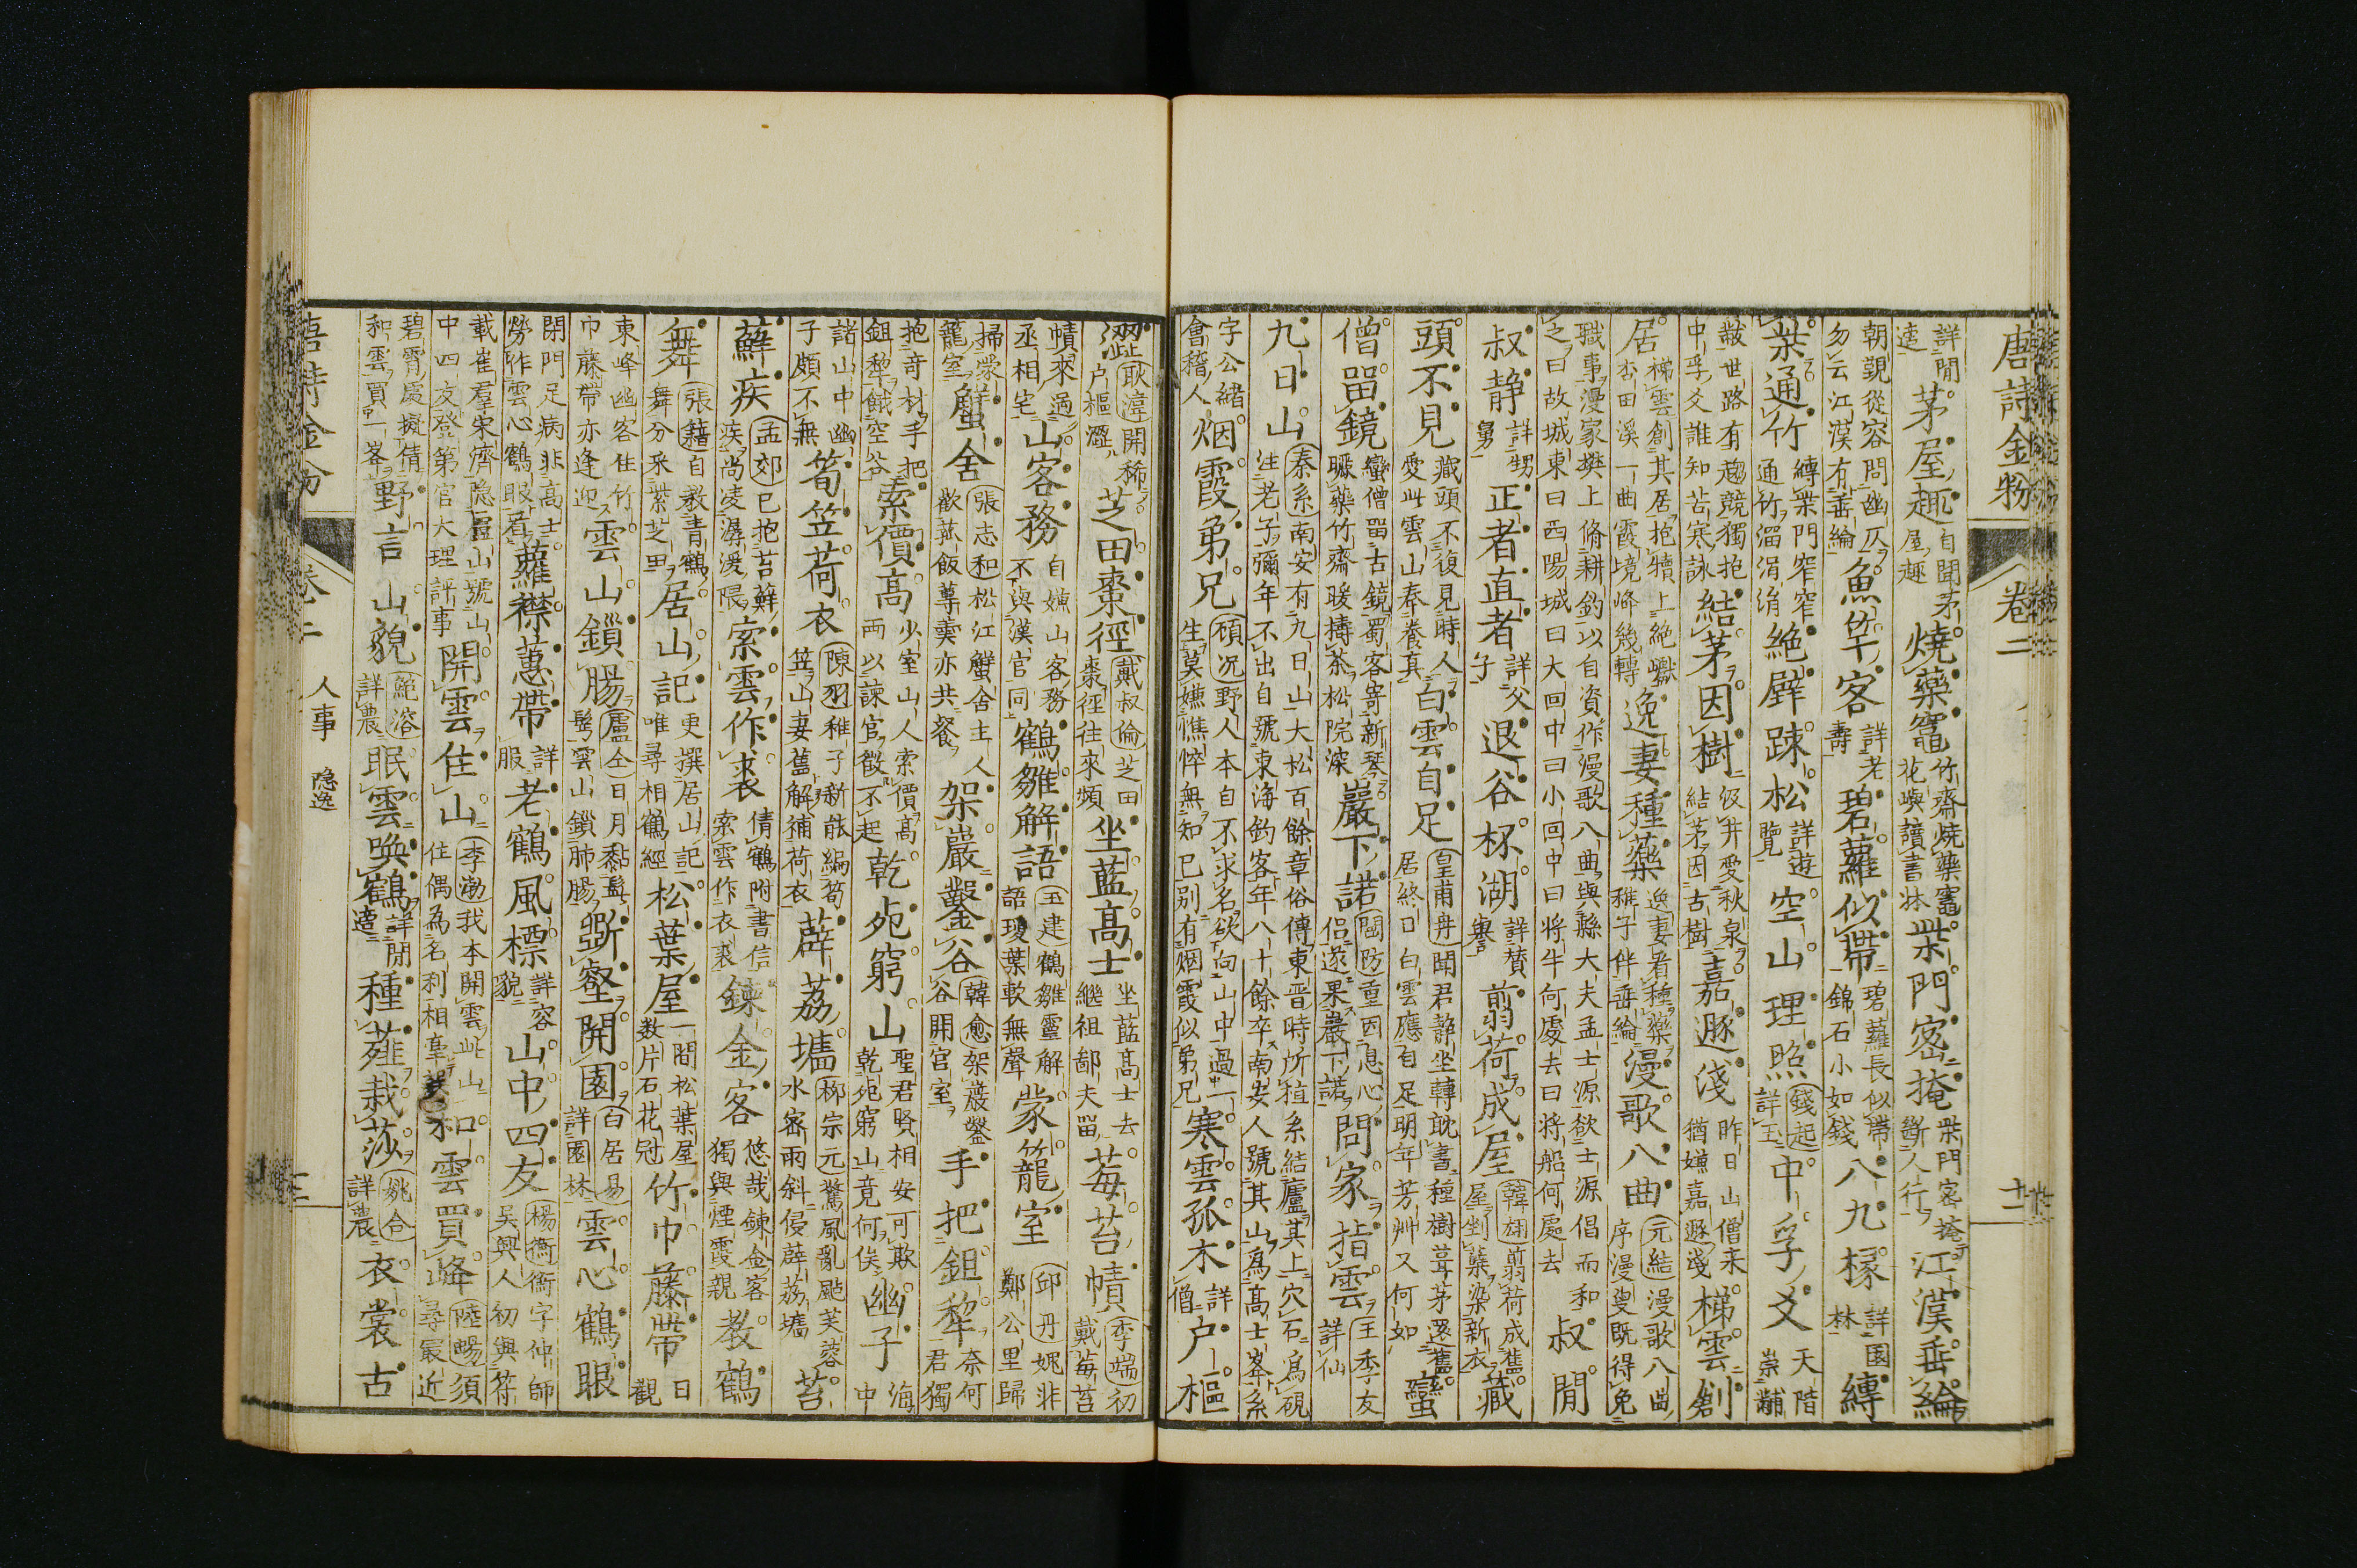 唐詩金粉 卷二 十二
詳閒適 茅屋趣 自聞茅屋趣 燒藥竈 竹齋燒藥竈花嶼讀書牀 柴門密掩 柴門密掩斷人行 江漢垂綸
朝覲從容問幽仄勿云江漢有垂綸 魚竿客 詳老壽 碧蘿似帶 碧蘿長似帶錦石小如錢 八九椽 詳園林 縛
柴通竹 縛柴門窄窄通竹溜涓涓 絶壁踈松 詳遊覽 空山理照 錢起詳玉 中孚爻 天階崇黼
黻世路有趨競獨抱中孚爻誰知苦寒詠 結茅因樹 伋井愛秋泉結茅因古樹 嘉遯淺 昨日山僧来猶嫌嘉遯淺 梯雲創
居 梯雲創其居抱犢上絶巘杏田溪一曲霞境峰幾轉 逸妻種藥 逸妻看種藥稚子伴垂綸 漫歌八曲 元結漫歌八曲序漫叟既得免
職事漫家樊上脩耕釣以自資作漫歌八曲與縣大夫孟士源欲士源倡而和之曰故城東曰西陽城曰大回中曰小回中曰将牛何處去曰将船何處去 叔閒
叔静 詳甥舅 正者直者 詳父子 退谷杯湖 詳贊譽 翦荷成屋 韓翃翦荷成舊屋剉蘗染新衣 藏
頭不見 藏頭不復見時人愛此雲山奉養真 白雲自足 皇甫冉聞君静坐轉耽書種樹葺茅還舊居終日白雲應自足明年芳艸又何如 蠻
僧留鏡 蠻僧留古鏡蜀客寄新琴曬藥竹齋暖擣茶松院深 巖下諾 閻防童因息心侶遂果巖下諾 問家指雲 王季友詳仙
九日山 秦系南安有九日山大松百餘章俗傳東晋時所植系結廬其上穴石為硯注老子彌年不出自號東海釣客年八十餘卒南安人號其山為高士峯系
字公緒會稽人 烟霞弟兄 顧况野人本自不求名欲向山中過一生莫嫌憔悴無知已别有烟霞似弟兄 寒雲孤木 詳僧 户樞
澀 耿湋開稀户樞澀 芝田棗徑 戴叔倫芝田棗徑往來頻 坐藍高士 坐藍高士去繼祖鄙夫留 莓苔幘 李端初戴莓苔
幘來過丞相宅 山客務 自嫌山客務不與漢官同 鶴雛解語 王建鶴雛靈解語瓊葉軟無聲 蒙籠室 邱丹媿非鄭公里歸
掃蒙籠室 蟹舍 張志和松江蟹舍主人歡菰飯蓴羹亦共餐 架巖鑿谷 韓愈架巖鑿谷開官室 手把鉏犂 奈何君獨
抱奇材手把鉏犂餓空谷 索價高 少室山人索價高兩以諫官徵不起 乾死窮山 聖君賢相安可欺乾死窮山竟何俟 幽子 海中
諸山中幽子頗不無 筍笠荷衣 陳羽稚子新能編筍笠山妻舊解補荷衣 薜荔墻 柳宗元驚風亂颭芙蓉水密雨斜侵薜荔墻 苔
蘚疾 孟郊已抱苔蘚疾尚凌潺湲隈 索雲作裘 倩鶴附書信索雲作衣裘 鍊金客 悠哉鍊金客獨與煙霞親 教鶴
舞 張籍自教青鶴舞分采紫芝里 居山記 更撰居山記唯尋相鶴經 松葉屋 一間松葉屋数片石花冠 竹巾藤帶 日觀
東峰幽客住竹巾藤帶亦逢迎 雲山鎖腸 盧仝日月黏髭鬢雲山鎖肺腸 斲壑開園 白居易詳園林 雲心鶴眼
閉門足病非高士勞作雲心鶴眼看 蘿襟蕙帶 詳服 老鶴風標 詳容貌 山中四友 楊衡衡字仲師吳興人初與符
載崔羣宋濟隱廬山號山中四友登第官大理評事 開雲住山 李渤我本開雲此山住偶為名利相牽 和雲買峰 陸暢須尋最近
碧霄處擬倩和雲買一峯 野言山貌 鮑溶詳農 眠雲喚鶴 詳閒適 種薤栽莎 姚合詳農 衣裳古
唐詩金粉 卷二 人事 隠逸 十二